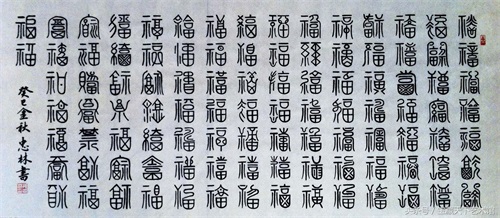 福福福福福福福
福福福福福福福
福福福福福福福
福福福福福福福
福福福福福福福
福福福福福福福
福福福福福福福
福福福福福福福
福福福福福福福
福福福福福福福
福福福福福福福
福福福福福福福
福福福福福福福
福福福福福福福
福福
癸巳金秋惠林书